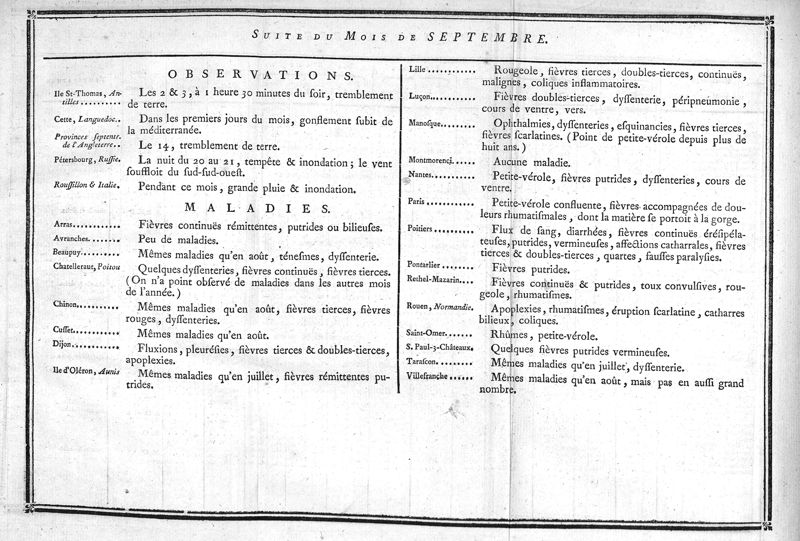 SUITE DU MOIS DE SEPTEMBRE.
OBSERVATIONS.
Ile St-Thomas, An- Les 2 & 3, à 1 heure 30 minutes du soir, tremblement
tilles.......... de terre.
Cette, Languedoc.. Dans les premiers jours du mois, gonflement subit de
la méditerranée.
Provinces septentr.
de l'Angleterre.. Le 14, tremblement de terre.
Pétersbourg, Russie. La nuit du 20 au 21, tempête & inondation; le vent
souffloit du sud-sud-ouest.
Roussillon & Italie. Pendant ce mois, grande pluie & inondation.
MALADIES.
Arras........... Fièvres continuës rémittentes, putrides ou bilieuses.
Avranches........ Peu de maladies.
Beaupuy......... Mêmes maladies qu'en août, ténesmes, dyssenterie.
Chatelleraut, Poitou Quelques dyssenteries, fièvres continuës, fièvres tierces.
(On n'a point observé de maladies dans les autres mois
de l'année.)
Chinon.......... Mêmes maladies qu'en août, fièvres tierces, fièvres
rouges, dyssenteries.
Cusset........... Mêmes maladies qu'en août.
Dijon........... Fluxions, pleurésies, fièvres tierces & doubles-tierces,
apoplexies.
Ile d'Oléron, Aunis Mêmes maladies qu'en juillet, fièvres rémittentes pu-
trides.
Lille............ Rougeole, fièvres tierces, doubles-tierces, continuës,
malignes, coliques inflammatoires.
Luçon........... Fièvres doubles-tierces, dyssenterie, péripneumonie,
cours de ventre, vers.
Manosque......... Ophthalmies, dyssenteries, esquinancies, fièvres tierces,
fièvres scarlatines. (Point de petite-vérole depuis plus de
huit ans.)
Montmorenci..... Aucune maladie.
Nantes.......... Petite-vérole, fièvres putrides, dyssenteries, cours de
ventre.
Paris ........... Petite-vérole confluente, fièvres accompagnées de dou-
leurs rhumatismales, dont la matière se portoit à la gorge.
Poitiers ......... Flux de sang, diarrhées, fièvres continuës érésipéla-
teuses, putrides, vermineuses, affections catharrales, fièvres
tierces & doubles-tierces, quartes, fausses paralysies.
Pontarlier ....... Fièvres putrides.
Rethel-Mazarin.... Fièvres continuës & putrides, toux convulsives, rou-
geole, rhumatismes.
Rouen, Normandie. Apoplexies, rhumatismes, éruption scarlatine, catharres
bilieux, coliques.
Saint-Omer....... Rhûmes, petite-vérole.
S. Paul-3-Châteaux. Quelques fièvres putrides vermineuses.
Tarascon......... Mêmes maladies qu'en juillet, dyssenterie.
Villefranche ...... Mêmes maladies qu'en août, mais pas en aussi grand
nombre.